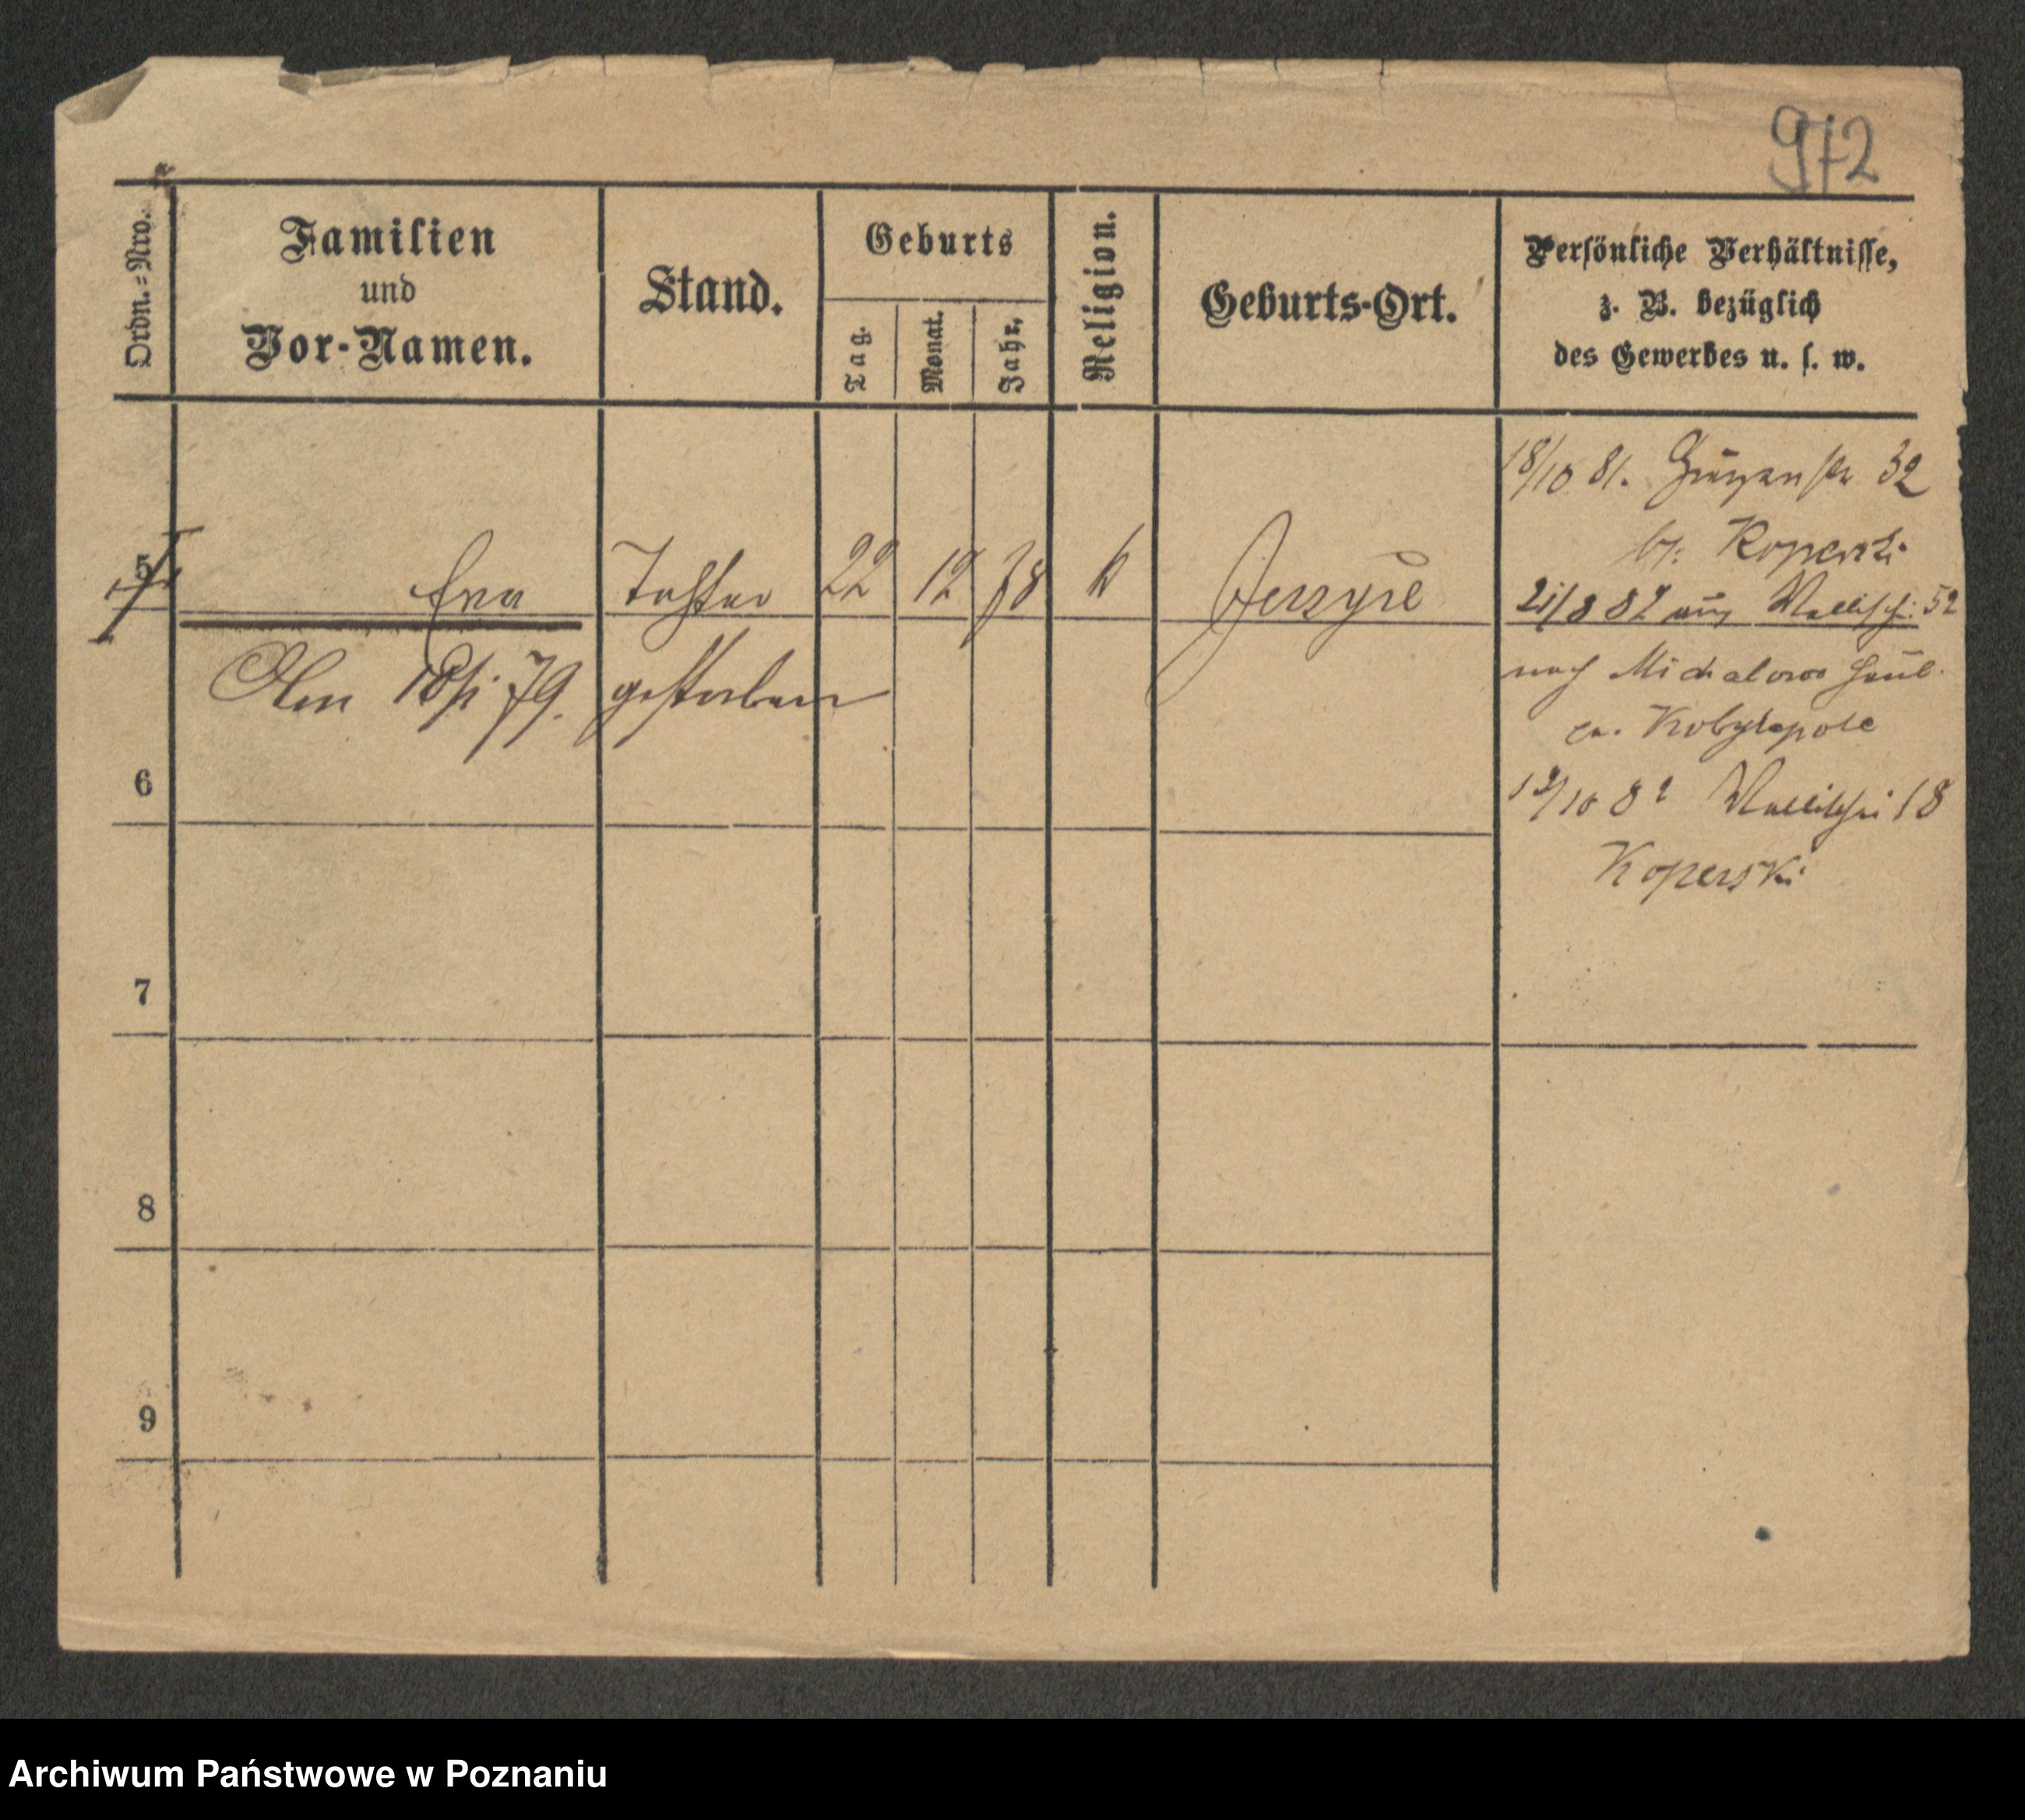 972
Ordn.=Nro.
Familien
und
Vor-Namen.
Stand.
Geburts
Tag.
Monat.
Jahr.
Religion.
Geburts-Ort.
Persönliche Verhältnisse,
z. B. bezüglich
des Gewerbes u. s. w.
18/10 81. 32
b/: Koperski
5 Eva Tochter 22 12 78 k Jerzyce
21/8 82 aus Wallischei 52
Am 18/1 79. gestorben
nach Michalowo
Kobylepole
6
/10 82 Wallischei 18
Koperski
7
8
9
Archiwum Państwowe w Poznaniu